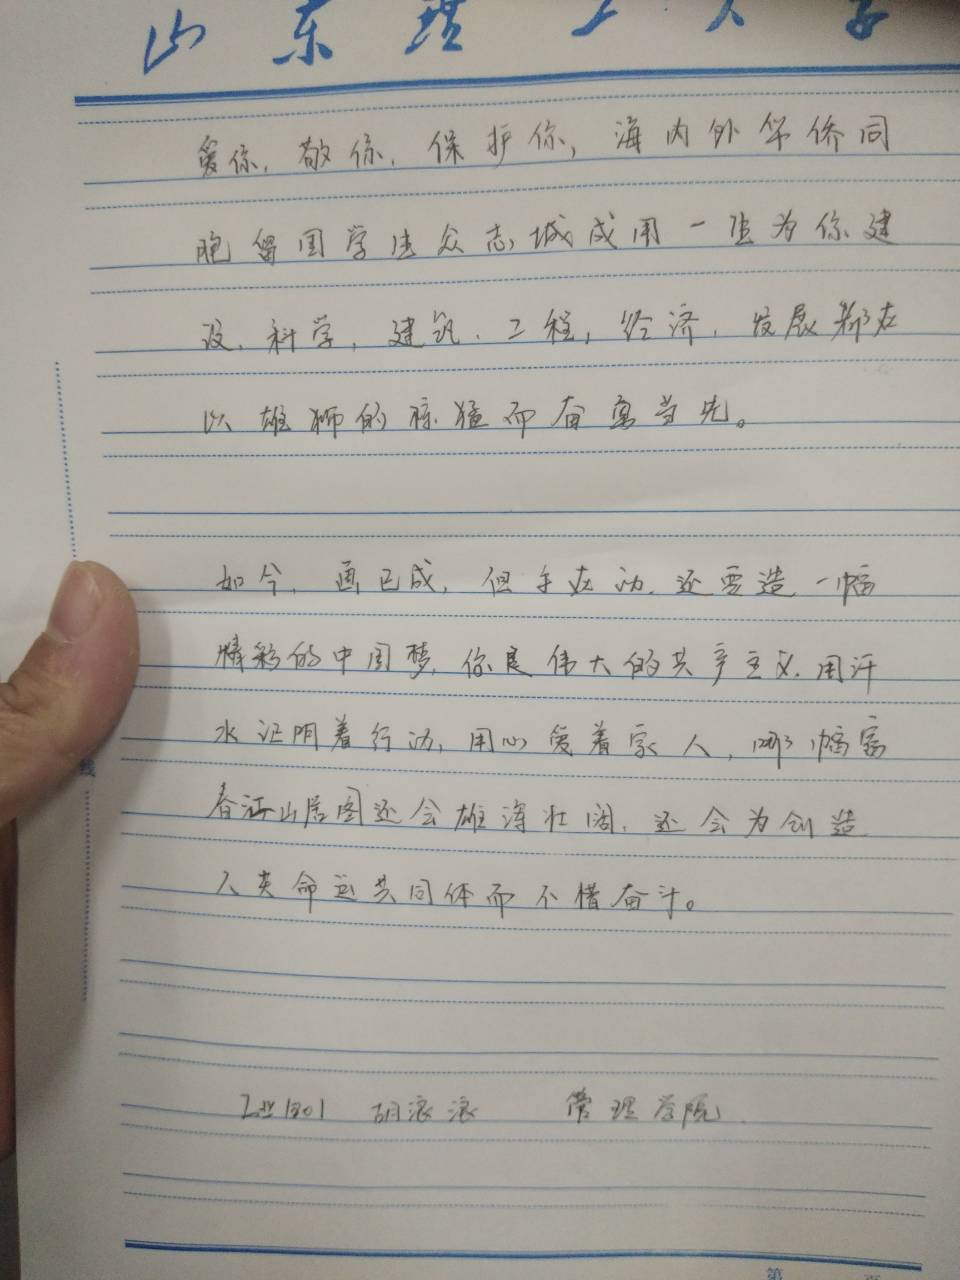 山东理工大学
爱你,敬你,保护你,海内外华侨同
胞留国学生众志城成用一生为你建
设,科学,建筑,工程,经济,发展都在
以雄狮的猛而奋勇当先。
如今,画已成,但手在动,还要造一幅
精彩的中国梦,你是伟大的共产主义,用汗
水证明着行动,用心爱着家人,哪幅富
春江山居图还会雄浑壮阔,还会为创造
人类命运共同体而不惜奋斗。
胡浪浪 管理学院.
线
第 页